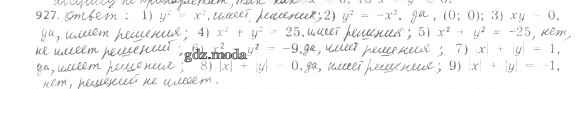 927. Ответ: 1) y² = x², имеет решения; 2) y² = -x², да, (0; 0); 3) xy = 0,
да, имеет решения; 4) x² + y² = 25, имеет решения; 5) x² + y² = -25, нет,
не имеет решений; 6) x² y² = -9, да, имеет решения; 7) |x| + |y| = 1,
gdz.moda
да, имеет решения; 8) |x| + |y| = 0, да, имеет решения; 9) |x| + |y| = -1,
нет, решений не имеет.